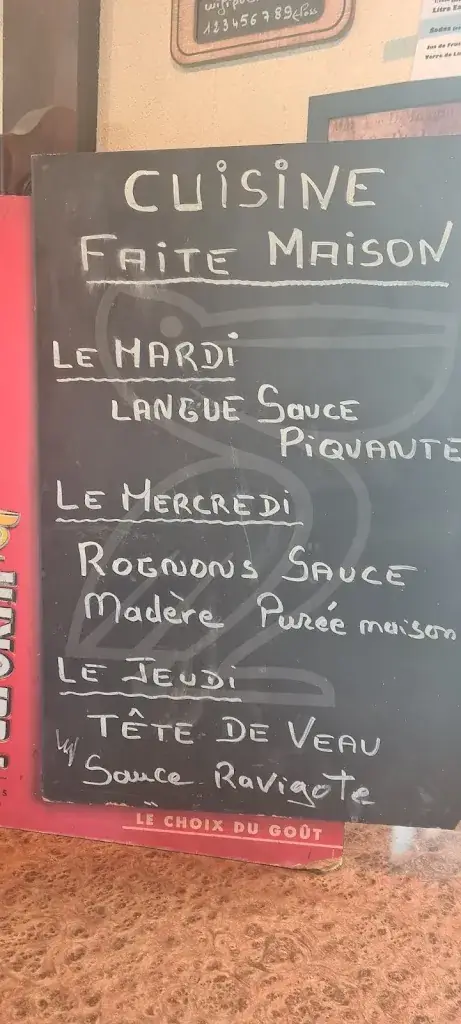 123456789
CUISINE
FAITE MAISON
LE MARDI
LANGUE SAUCE
PIQUANTE
LE MERCREDI
ROGNONS SAUCE
Madère Purée maison
LE JEUDI
TÊTE DE VEAU
Sauce Ravigote
LE CHOIX DU GOÛT